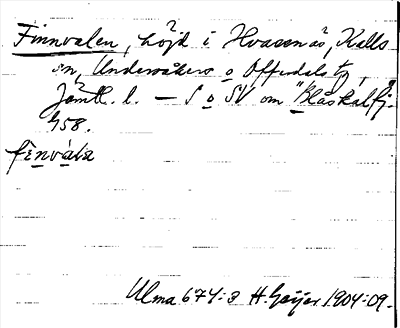 Finnvalen, höjd i Hvasenäs, Kalls
sn, Undersåkers o Offerdals tg,
Jämtl. l. — S o SV om "Blåskalfj.
458.
Ulma 674:3 H. Geijer 1904-09.